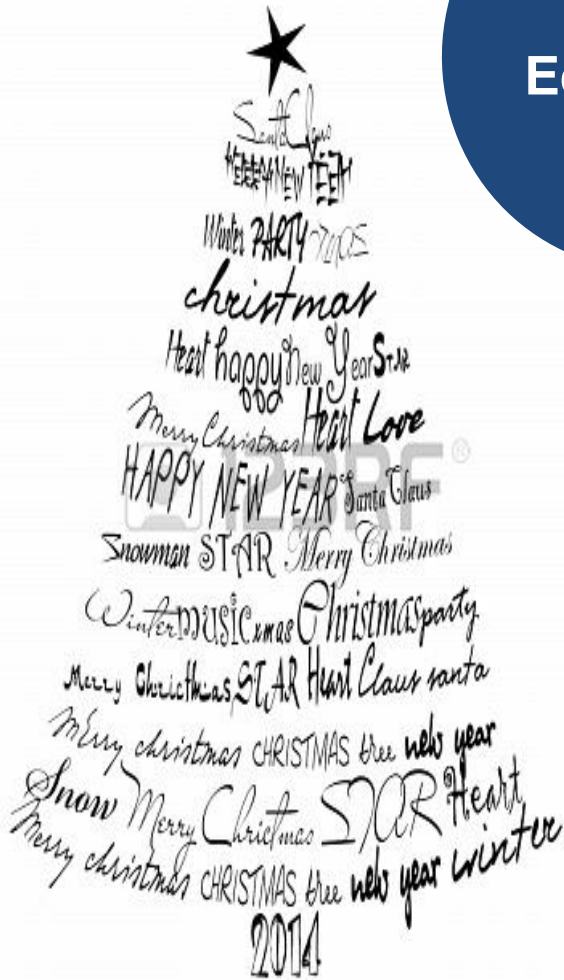 Santa Claus
NEW
Winter PARTY
christmas
Heart happy New Year STAR
Merry Christmas Heart Love
HAPPY NEW YEAR Santa Claus
123RF®
Snowman STAR Merry Christmas
Winter music xmas Christmas party
Merry Chricthias STAR Heart Claus santa
Merry christmas CHRISTMAS tree new year
Snow Merry Christmas STAR Heart
Merry christmas CHRISTMAS tree new year winter
2014